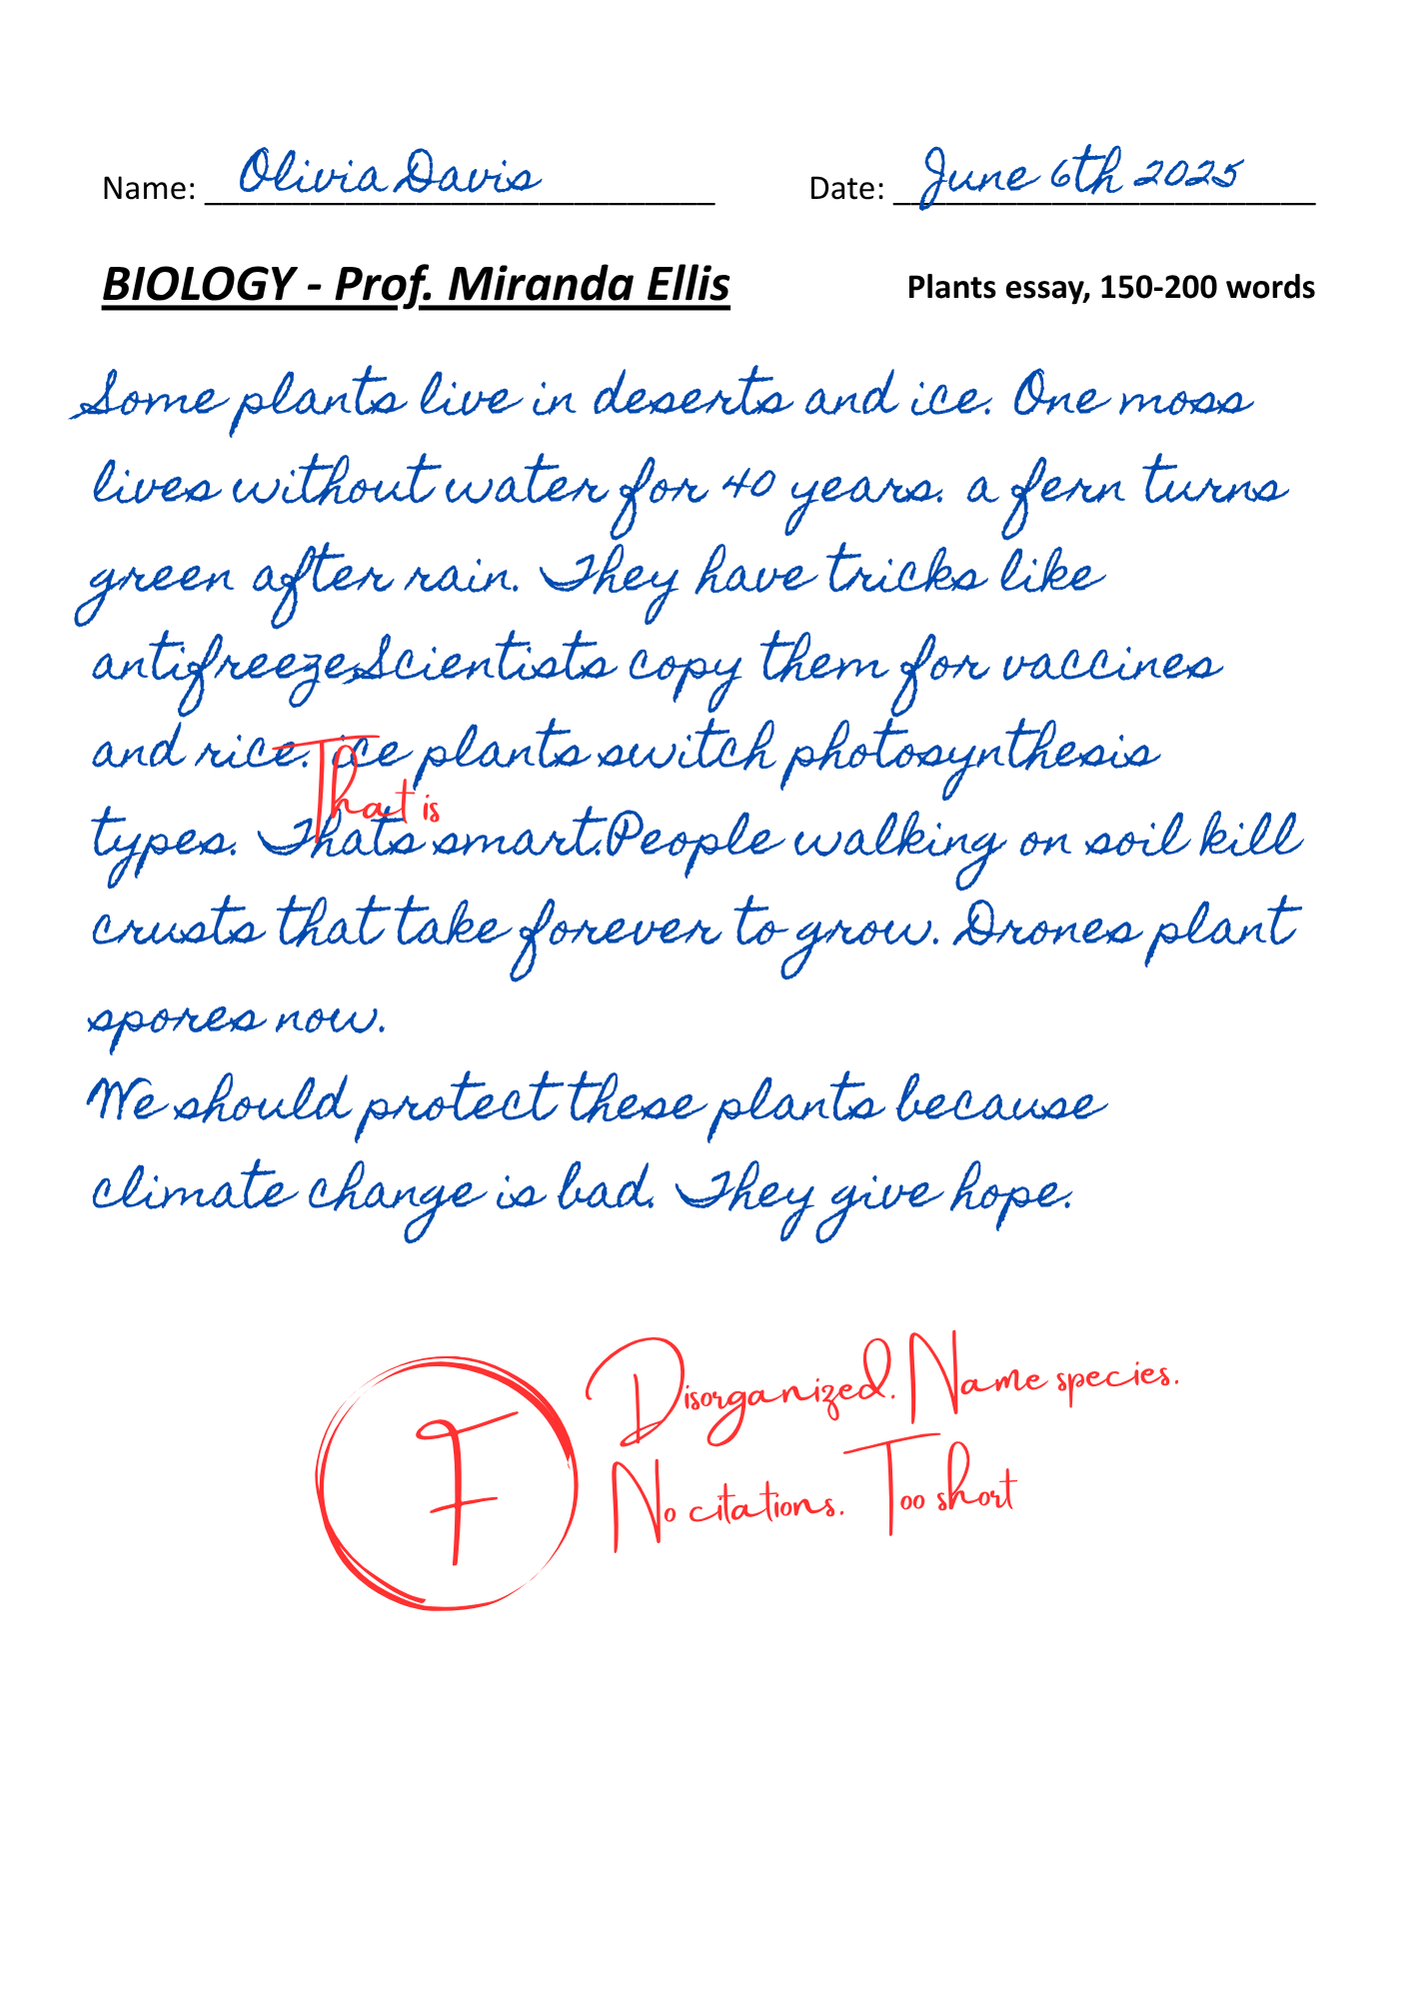 Name: Olivia Davis Date: June 6th 2025
BIOLOGY - Prof. Miranda Ellis Plants essay, 150-200 words
Some plants live in deserts and ice. One moss
lives without water for 40 years. a fern turns
green after rain. They have tricks like
antifreeze.Scientists copy them for vaccines
and rice. ice plants switch photosynthesis
That is
types. Thats smart.People walking on soil kill
crusts that take forever to grow. Drones plant
spores now.
We should protect these plants because
climate change is bad. They give hope.
F
Disorganized. Name species.
No citations. Too short